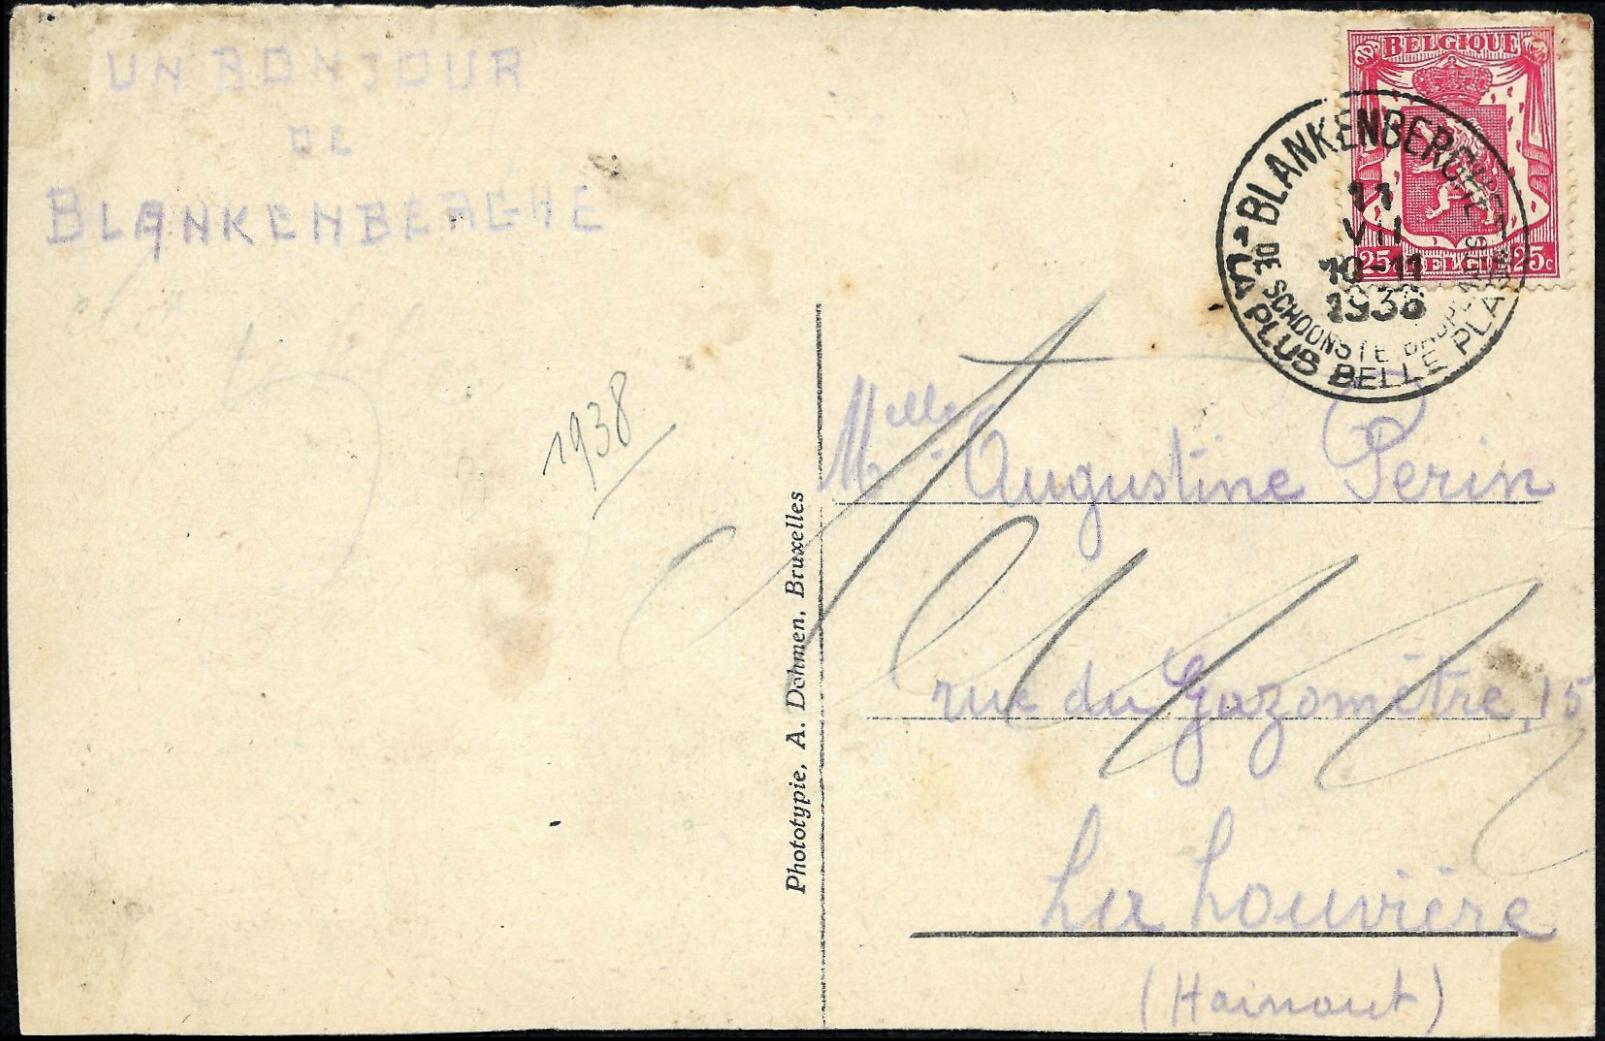 UN BONJOUR
DE
BLANKENBERGHE
1938
Phototypie, A. Dohmen, Bruxelles
BELGIQUE
25c BELGIE 25c
BLANKENBERGHE
11
VII
10-11
1938
DE SCHOONSTE
LA PLUS BELLE PLAGE
Melle Augustine Perin
rue du Gazomètre, 15
La Louvière
(Hainaut)